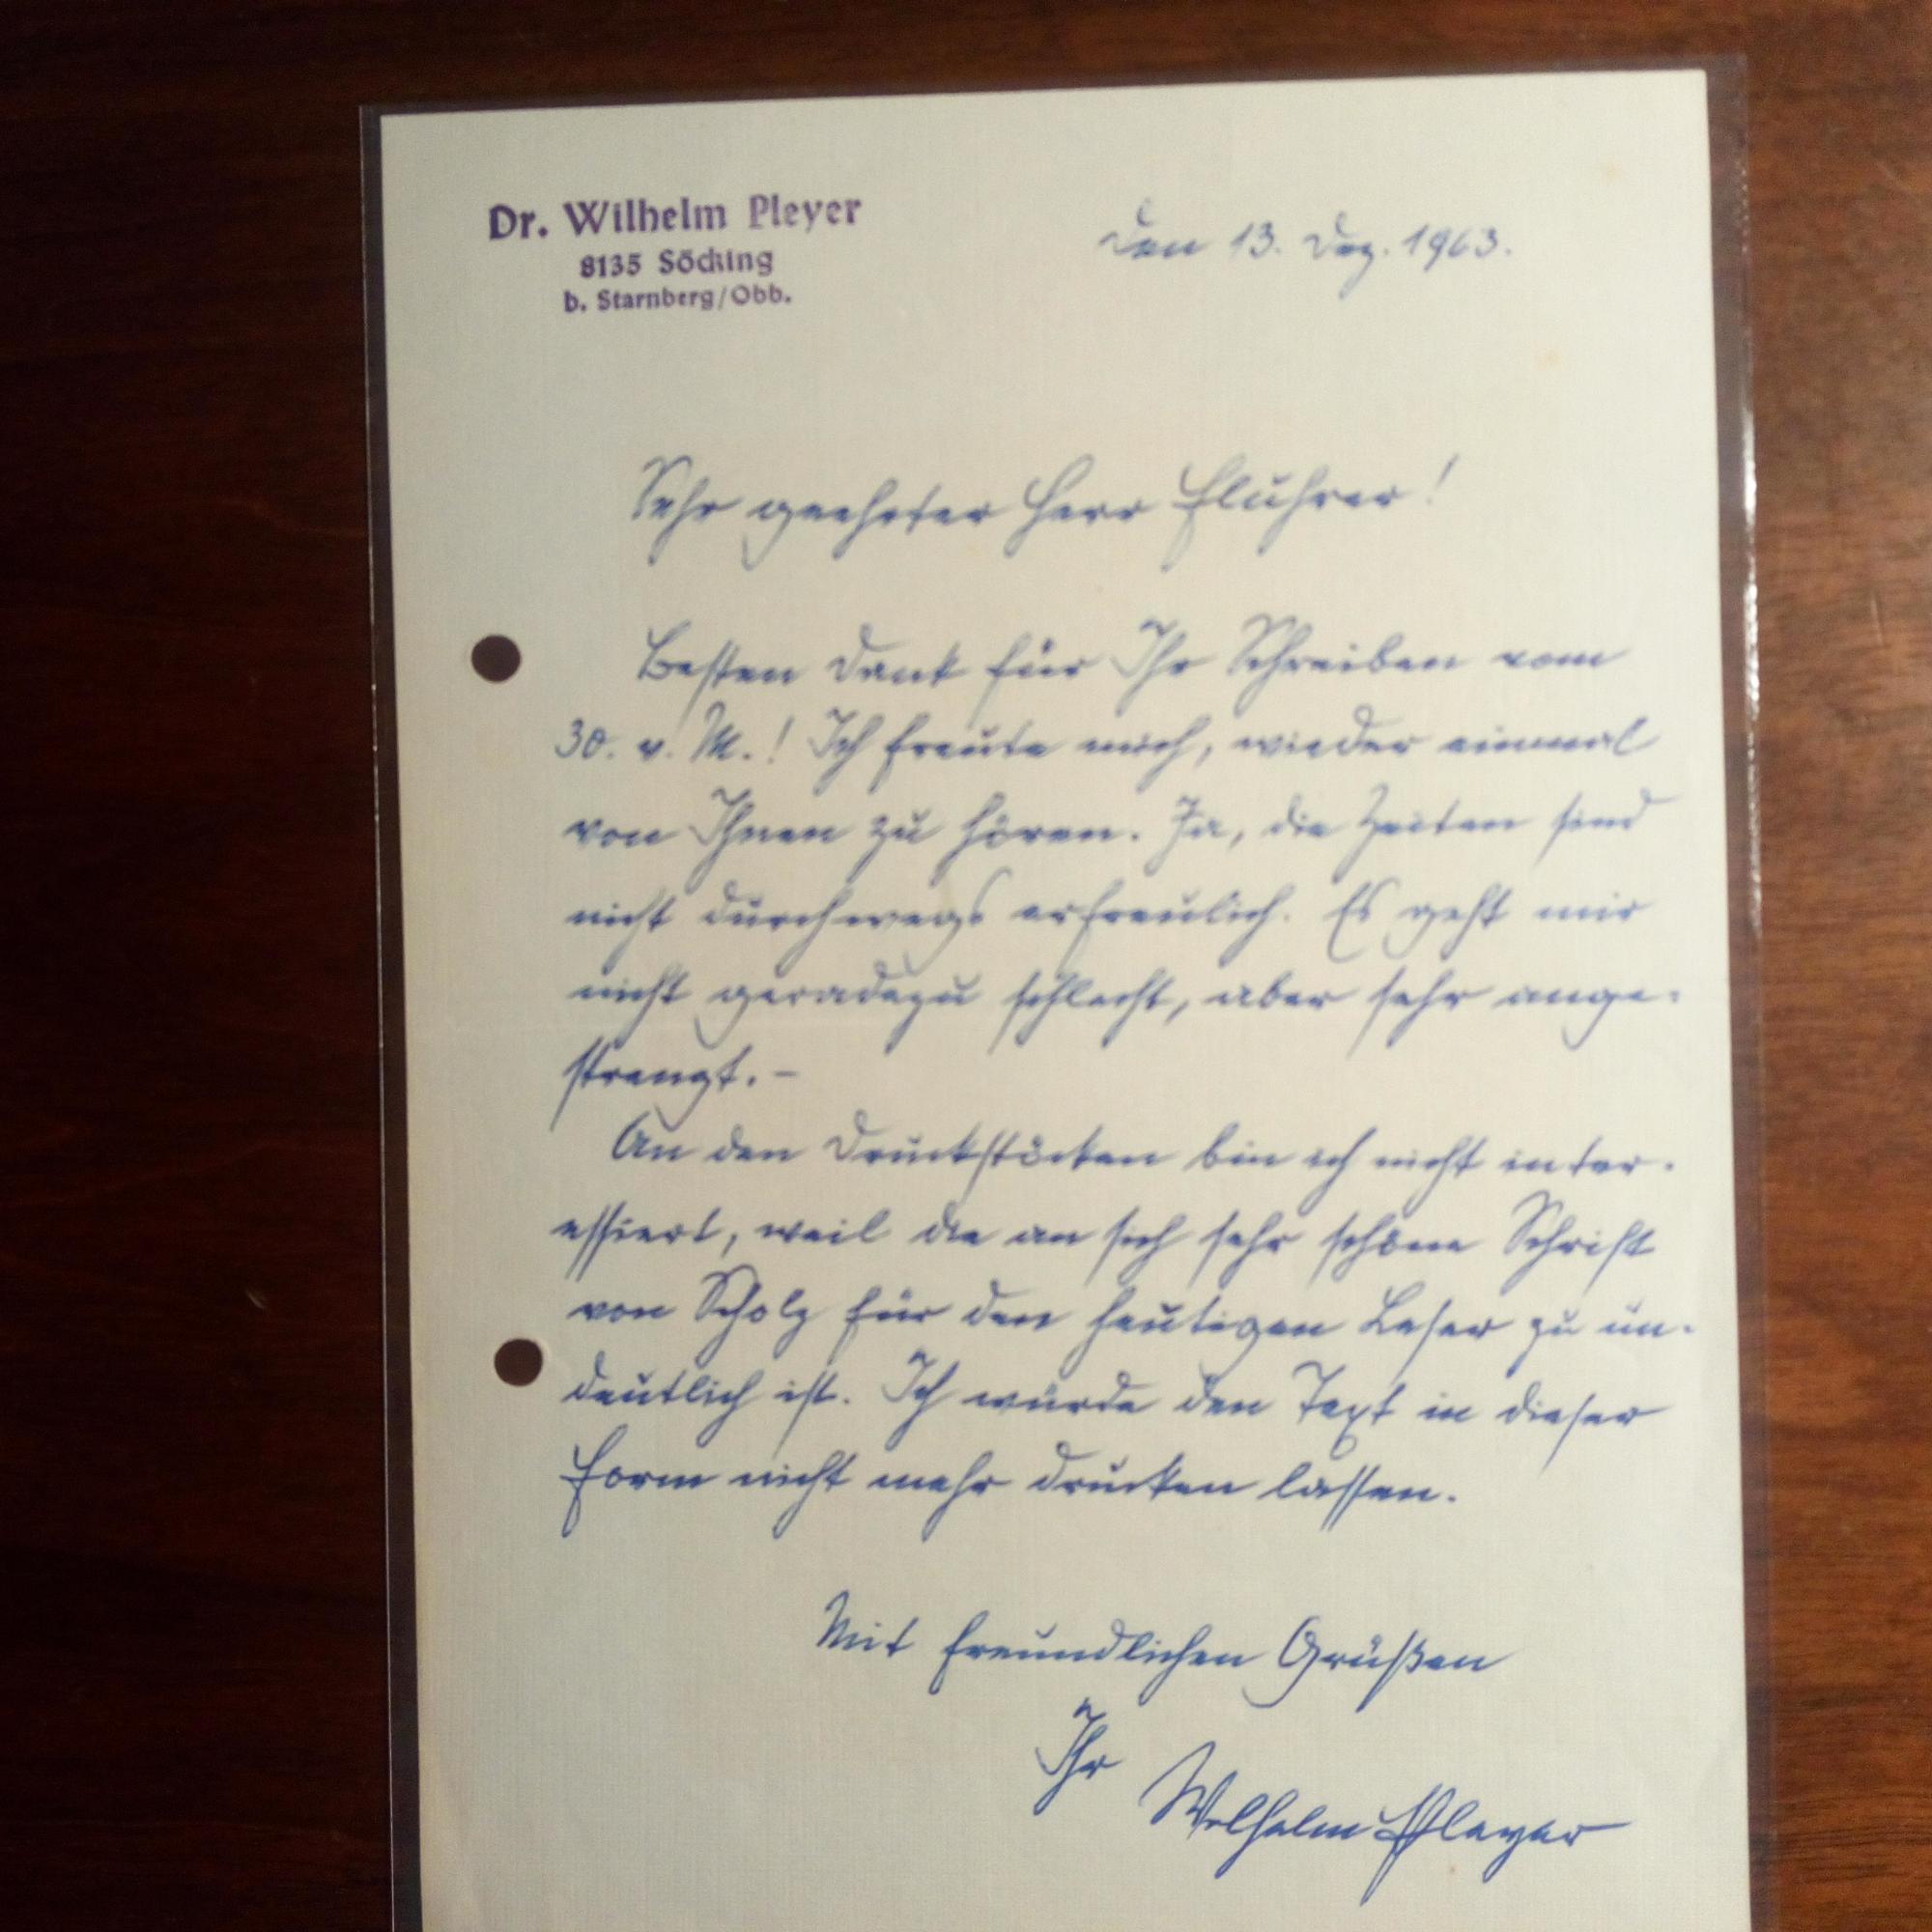 Dr. Wilhelm Pleyer
8135 Söcking
b. Starnberg/Obb.
Den 13. Dez. 1963.
Sehr geehrter Herr Fluhrer!
Besten Dank für Ihr Schreiben vom
30. v. M.! Ich freute mich, wieder einmal
von Ihnen zu hören. Ja, die Zeiten sind
nicht durchwegs erfreulich. Es geht mir
nicht geradezu schlecht, aber sehr ange-
strengt. –
An den Druckstöcken bin ich nicht inter-
essiert, weil die an sich sehr schöne Schrift
von Scholz für den heutigen Leser zu un-
deutlich ist. Ich würde den Text in dieser
Form nicht mehr drucken lassen.
Mit freundlichen Grüßen
Ihr
Wilhelm Pleyer